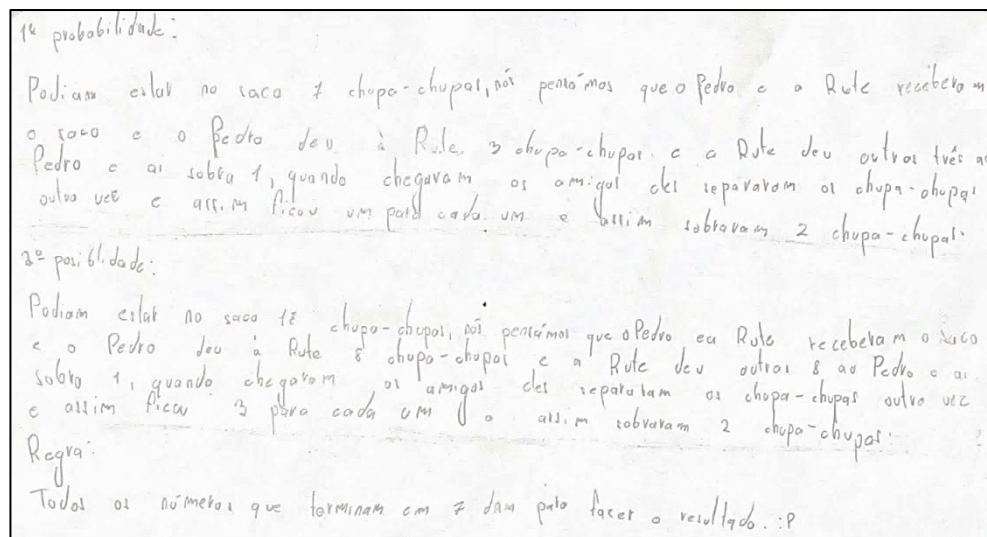 1ª probabilidade:
Podiam estar no saco 7 chupa-chupas, nós pensámos que o Pedro e a Rute receberam
o saco e o Pedro deu à Rute 3 chupa-chupas e a Rute deu outros três ao
Pedro e ai sobra 1, quando chegavam os amigos eles separavam os chupa-chupas
outra vez e assim ficou um para cada um e assim sobravam 2 chupa-chupas.
2º posiblidade:
Podiam estar no saco 17 chupa-chupas, nós pensámos que o Pedro e a Rute receberam o saco
e o Pedro deu à Rute 8 chupa-chupas e a Rute deu outras 8 ao Pedro e ai
sobra 1, quando chegavam os amigos eles separavam os chupa-chupas outra vez
e assim ficou 3 para cada um e assim sobravam 2 chupa-chupas.
Regra:
Todos os números que terminam em 7 dam para fazer o resultado. :P